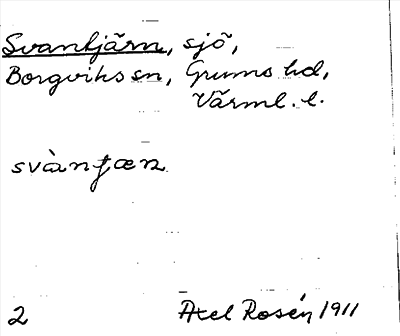 Svantjärn, sjö,
Borgviks sn, Grums hd,
Värml. l.
svàntæn
2 Axel Rosén 1911